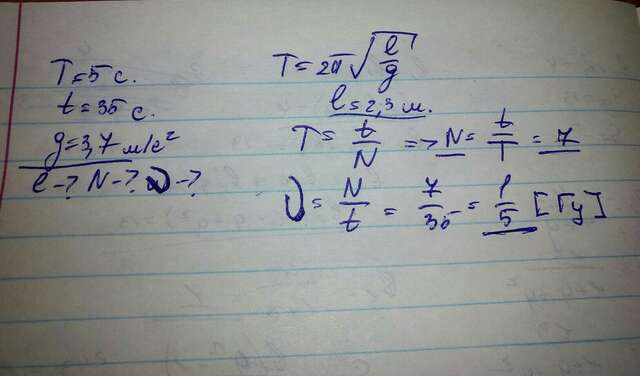 T=5 с.
t=35 с.
g=3,7 м/с²
l-? N-? ν-?
T=2π√(l/g)
l=2,3 м.
T= t/N => N= t/T = 7
ν= N/t = 7/35 = 1/5 [Гц]